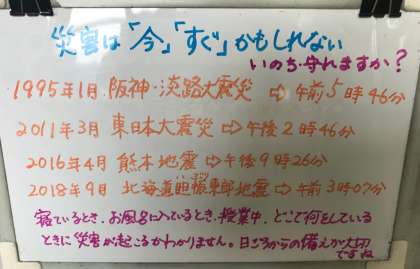 災害は「今」「すぐ」かもしれない
いのち守れますか?
1995年1月 阪神・淡路大震災 ⇨ 午前5時46分
2011年3月 東日本大震災 ⇨ 午後2時46分
2016年4月 熊本地震 ⇨ 午後9時26分
2018年9月 北海道胆振東部地震 ⇨ 午前3時07分
寝ているとき、お風呂に入っているとき、授業中、どこで何をしている
ときに災害が起こるかわかりません。日ごろからの備えが大切
ですね